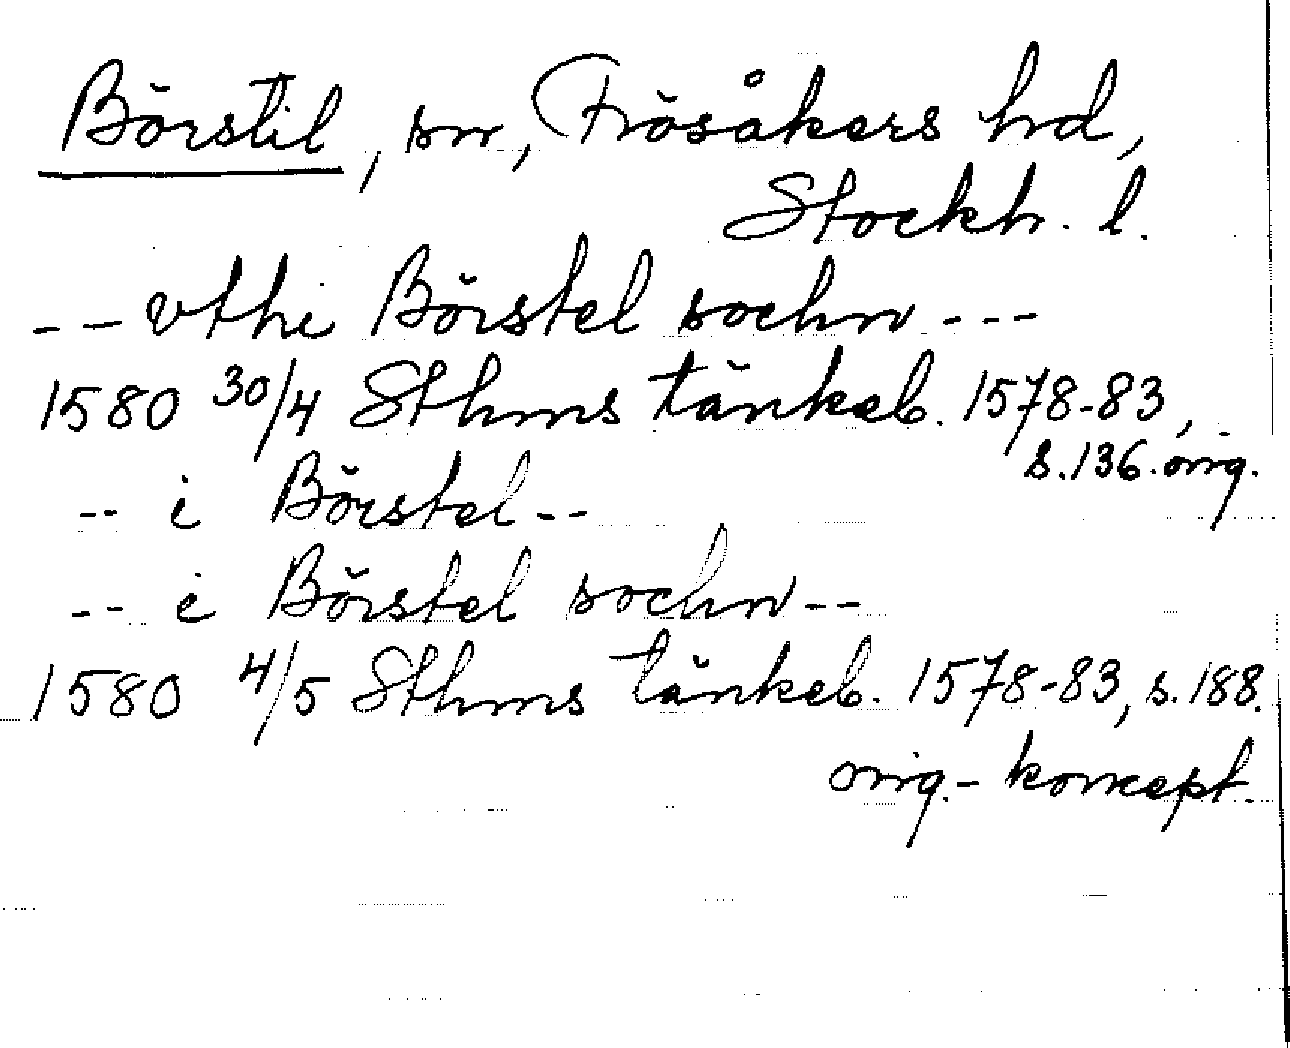 Börstil, sn, Frösåkers hd,
Stockh. l.
-- vthi Börstel sochn ---
1580 30/4 Sthms tänkeb. 1578-83,
s. 136. orig.
-- i Börstel --
-- i Börstel sochn --
1580 4/5 Sthms tänkeb. 1578-83, s. 188.
orig.- koncept.